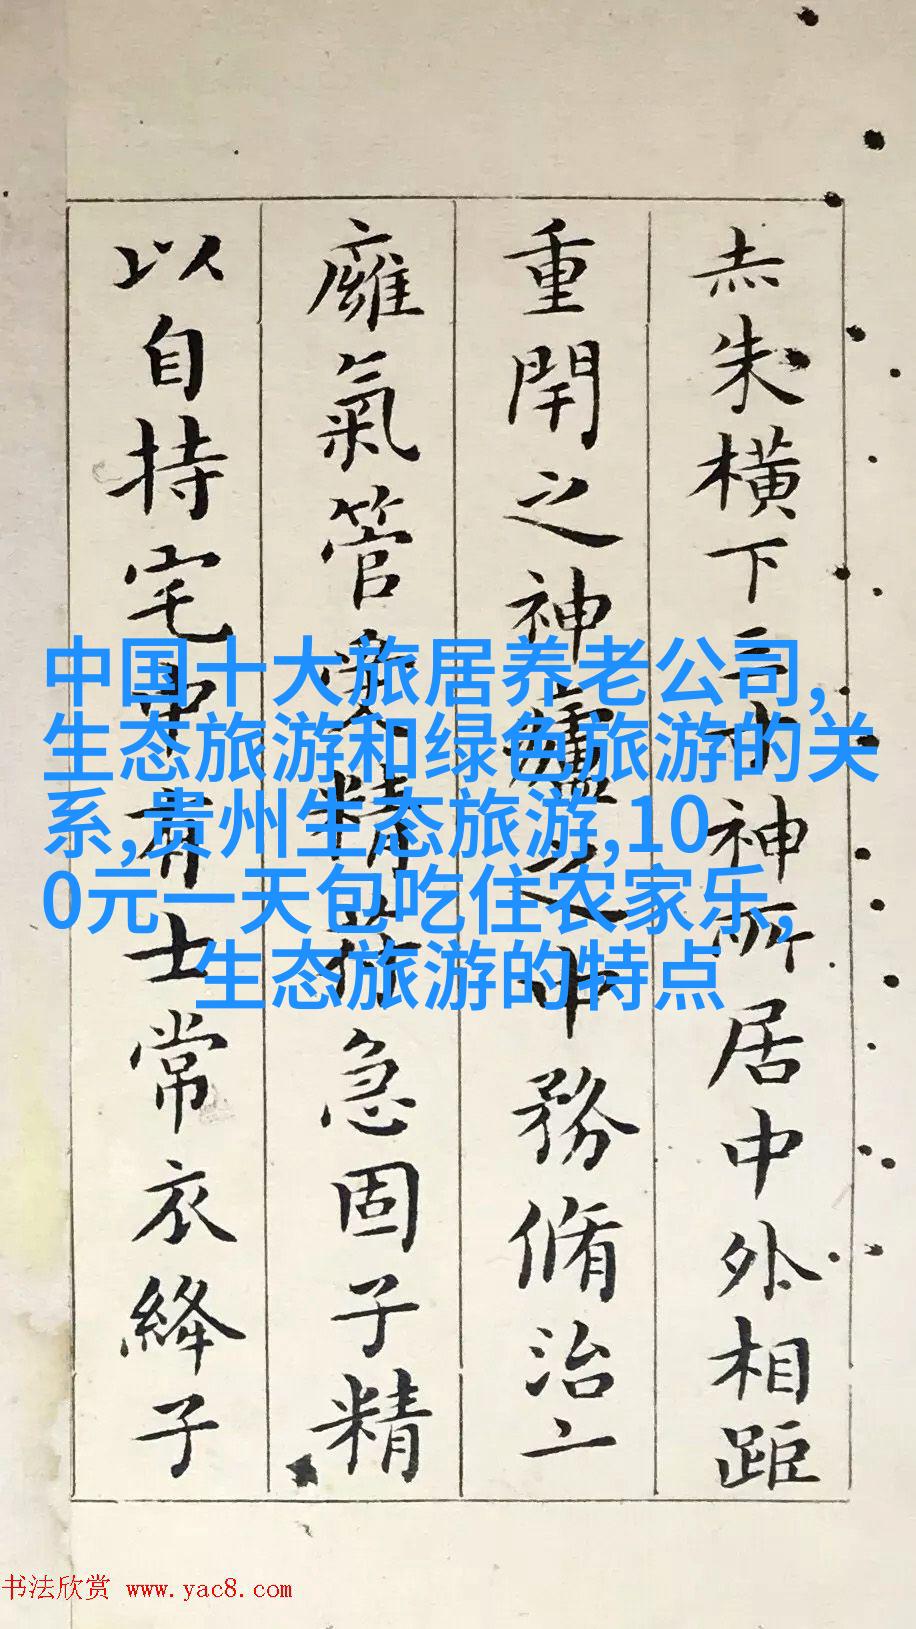 赤朱橫下三寸神所居中外相距
重閇之神廬之中務脩治
廱氣管受精苻急固子精
以自持宅中有士常衣絳子
中国十大旅居养老公司,
生态旅游和绿色旅游的关
系,贵州生态旅游,10
0元一天包吃住农家乐,
生态旅游的特点
书法欣赏 www.yac8.com